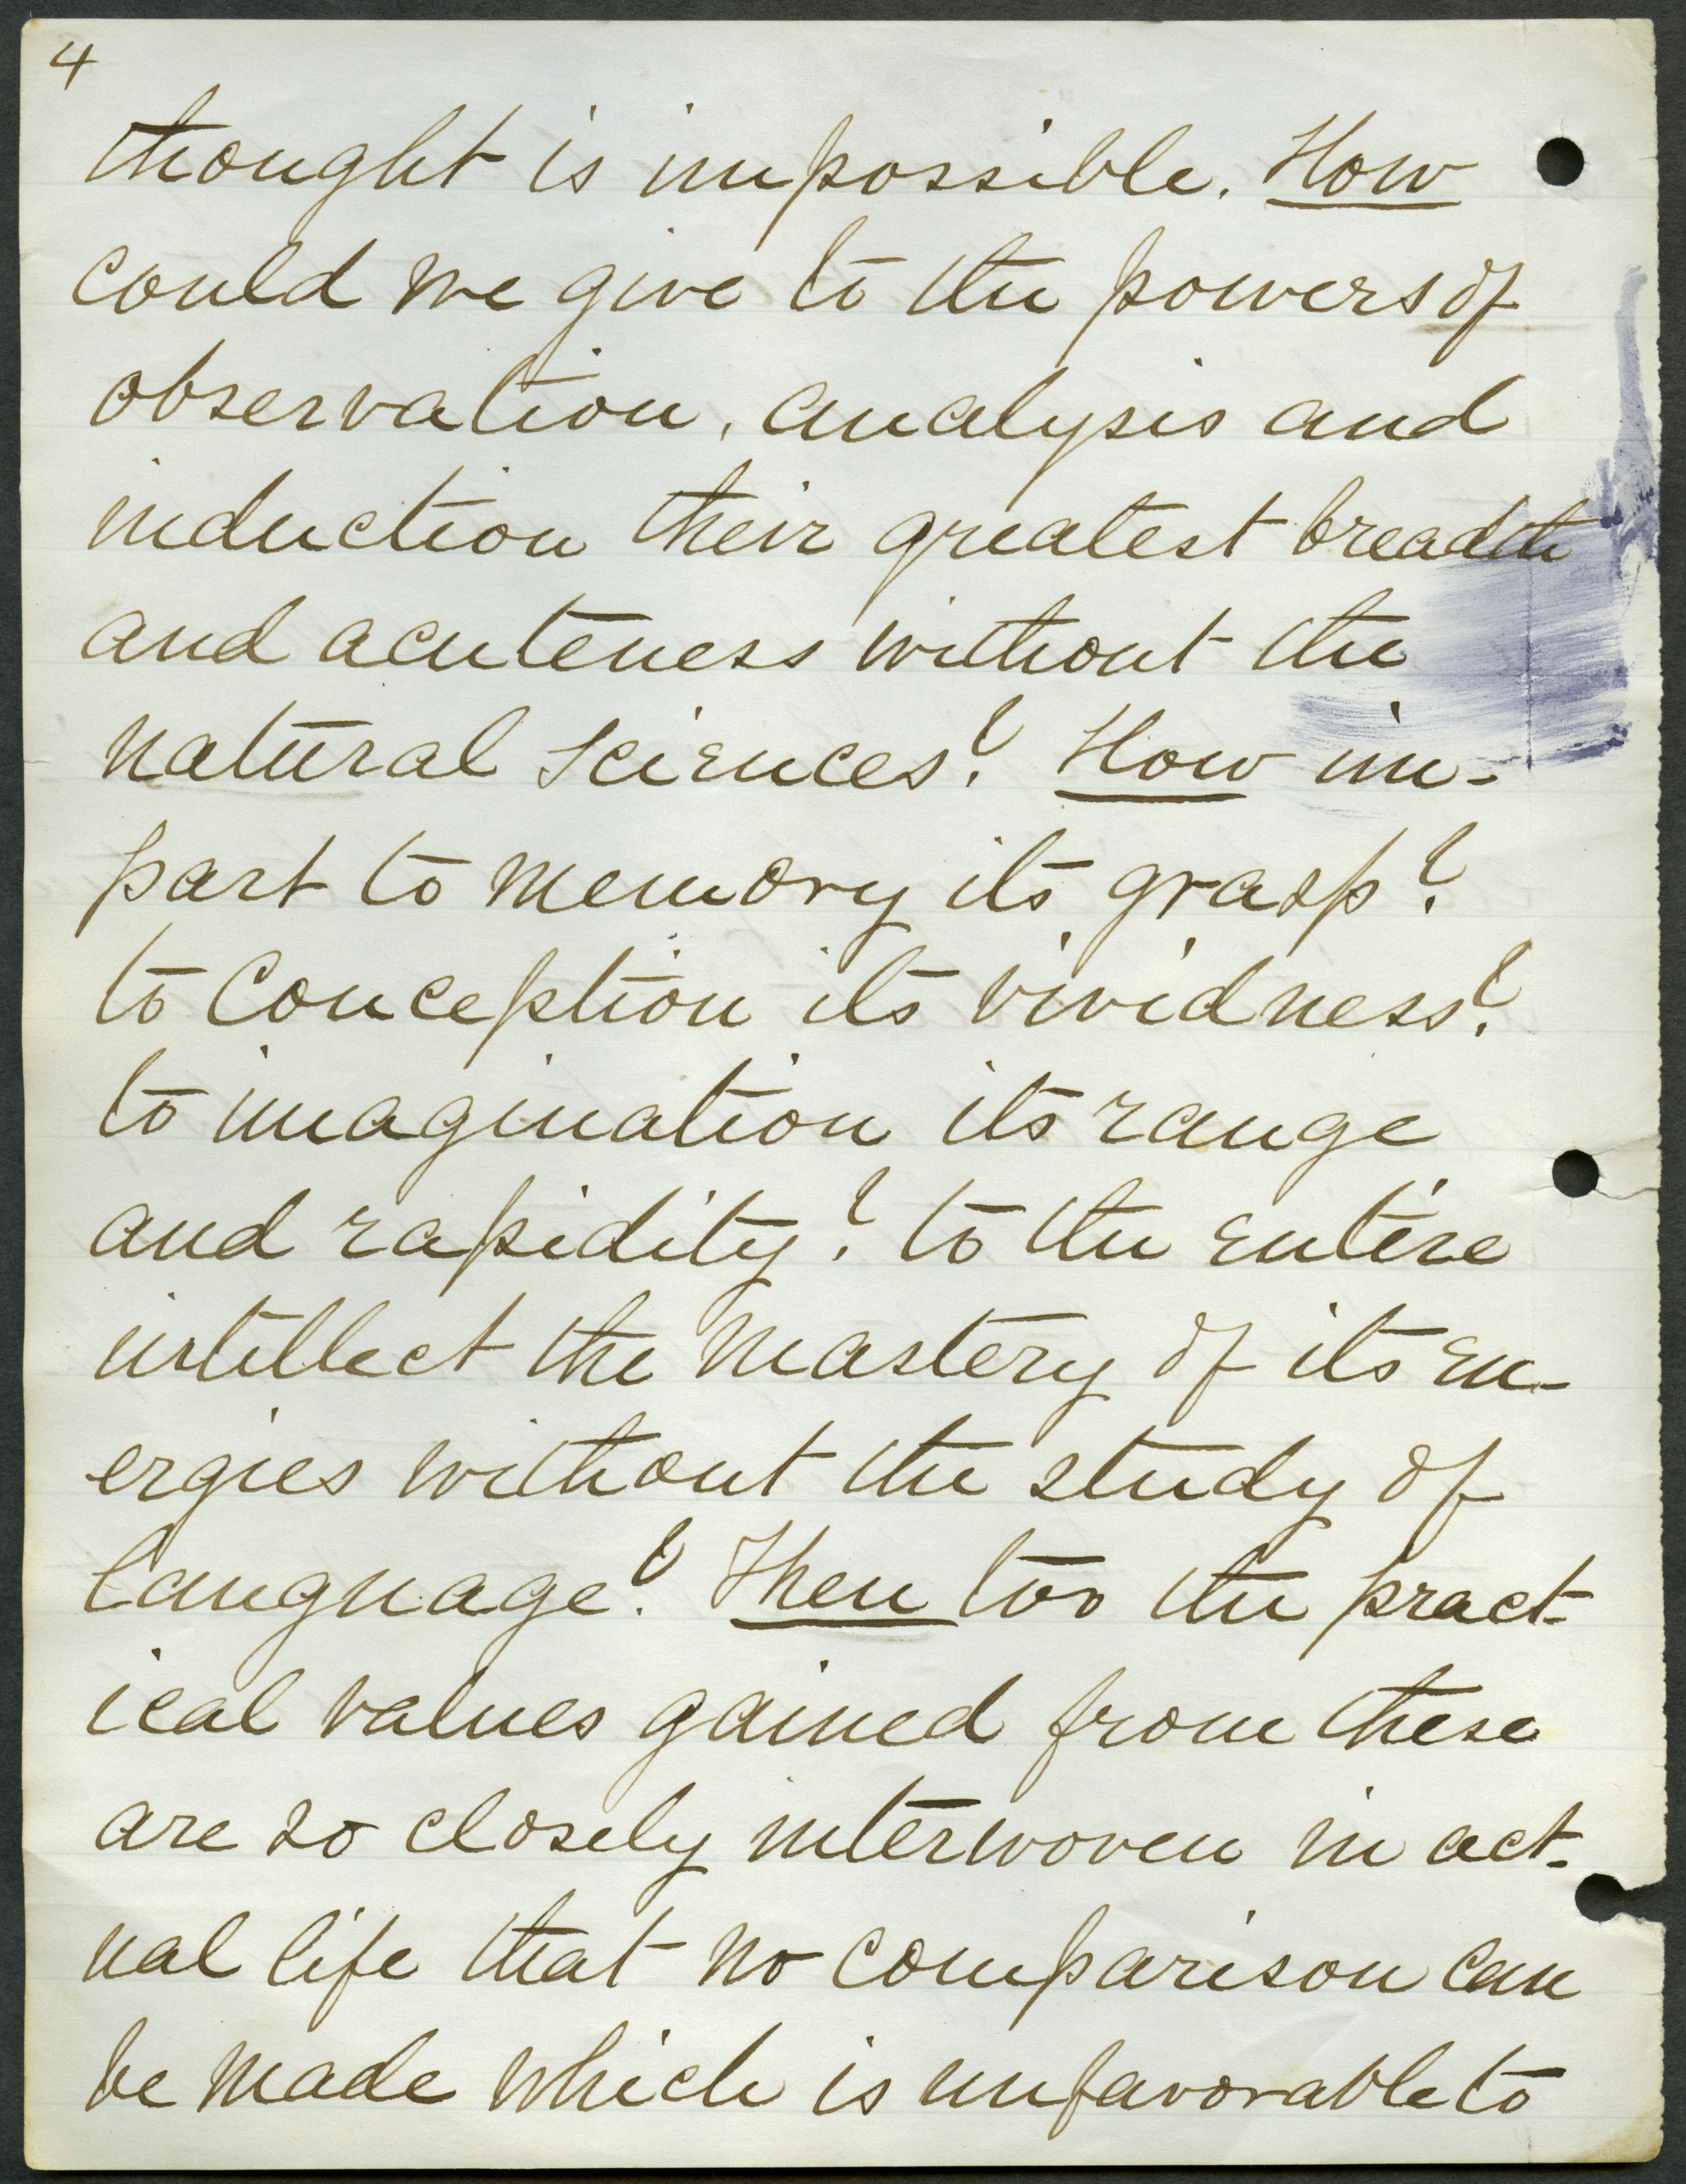 4
thought is impossible. How
could we give to the powers of
observation, analysis and
induction their greatest breadth
and acuteness without the
natural sciences? How im-
part to memory its grasp?
to conception its vividness?
to imagination its range
and rapidity? to the entire
intellect the mastery of its en-
ergies without the study of
language? Then too the pract-
ical values gained from these
are so closely interwoven in act-
ual life that no comparison can
be made which is unfavorable to